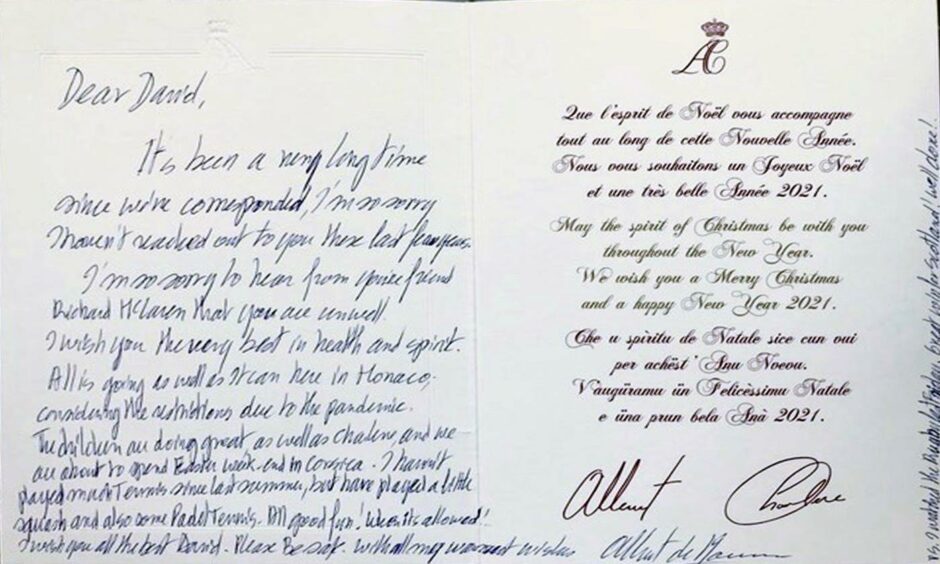 Dear David,
It's been a very long time
since we've corresponded, I'm so sorry
I haven't reached out to you these last few years.
I'm so sorry to hear from your friend
Richard McLaren that you are unwell.
I wish you the very best in health and spirit.
All is going as well as it can here in Monaco,
considering the restrictions due to the pandemic.
The children are doing great as well as Charlene, and we
are about to spend Easter week-end in Corsica. I haven't
played much Tennis since last summer, but have played a little
squash and also some Padel Tennis. All good fun! When it's allowed!
I wish you all the best David. Please Be safe. With all my warmest wishes
Albert de Monaco
AC
Que l'esprit de Noël vous accompagne
tout au long de cette Nouvelle Année.
Nous vous souhaitons un Joyeux Noël
et une très belle Année 2021.
May the spirit of Christmas be with you
throughout the New Year.
We wish you a Merry Christmas
and a happy New Year 2021.
Che u spiritu de Natale sice cun vui
per achëst' Anu Noeou.
V'augüramu ün Felicèssimu Natale
e üna prun bela Anà 2021.
Albert
Charlene
PS. I watched the Rugby last Friday, great win for Scotland! well done!